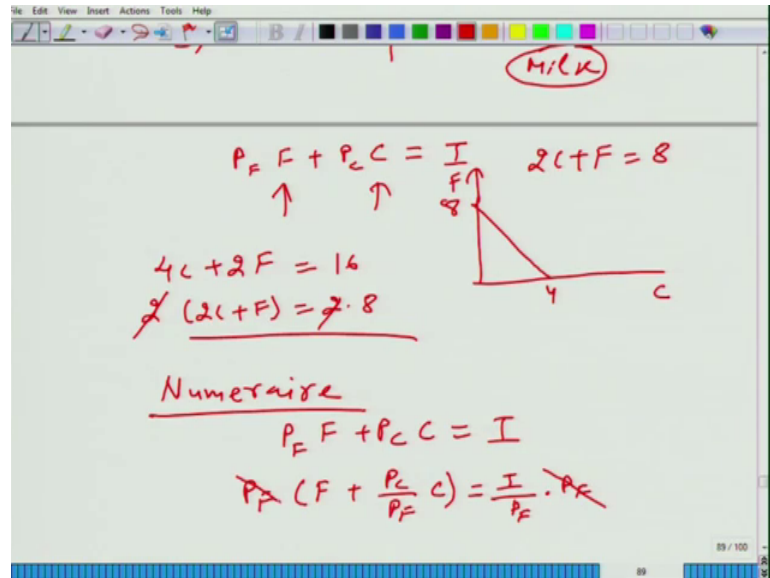 File Edit View Insert Actions Tools Help
B I
Milk
P_F F + P_C C = I
2C+F = 8
F
8
4
C
4C + 2F = 16
2 (2C+F) = 2.8
Numeraire
P_F F + P_C C = I
P_F (F + P_C/P_F C) = I/P_F . P_F
89 / 100
89